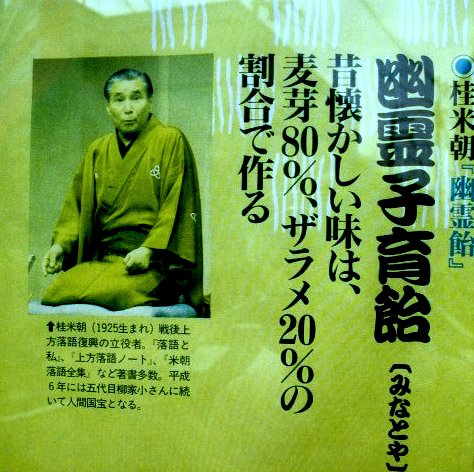 ●桂米朝『幽霊飴』
幽霊子育飴【みなとや】
昔懐かしい味は、
麦芽80%、ザラメ20%の
割合で作る
⬆桂米朝（1925生まれ）戦後上
方落語復興の立役者。『落語と
私』、『上方落語ノート』、『米朝
落語全集』など著書多数。平成
6年には五代目柳家小さんに続
いて人間国宝となる。